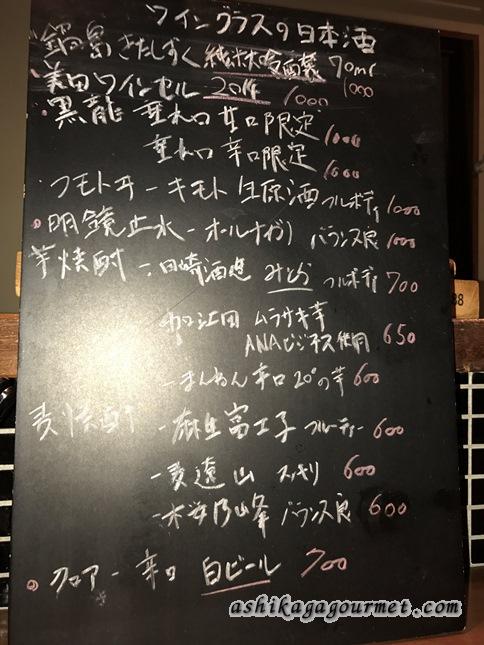 ワイングラスの日本酒
鍋島きたしずく純米大吟醸 70ml
1000
美田ワインセル 2014 1000
黒龍 垂れ口 甘口限定 1000
垂れ口 辛口限定 1000
フモトヰーキモト 生原酒 フルボディ 1000
明鏡止水-オールナガノ バランス良 1000
芋焼酎 田崎酒造 フルボディ 700
ムラサキ芋
ANAビジネス使用 650
-まんやん 辛口 20°の芋 600
麦焼酎 -麻生富士子 フルーティー 600
-麦 遠山 スッキリ 600
峰 バランス良 600
クロアー辛口 白ビール 700
ashikagagourmet.com